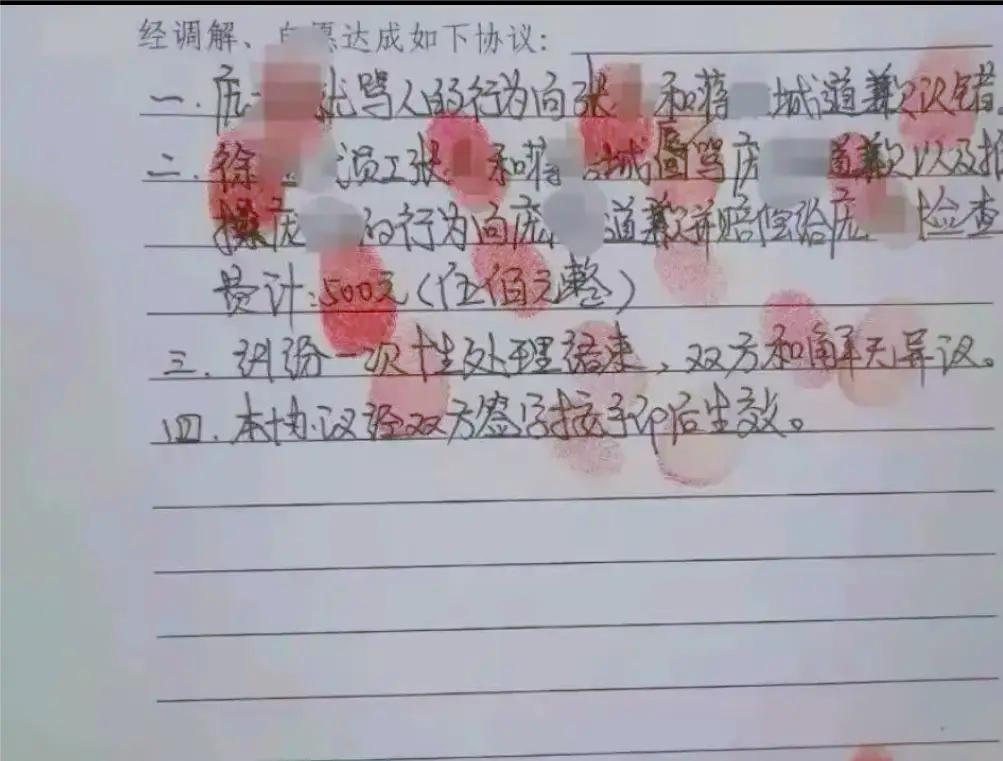 经调解、自愿达成如下协议：
一．庞 就骂人的行为向张 和蒋 城道歉认错
二．徐 员工张 和蒋 城 骂庞 道歉以及推
搡庞 的行为向庞 道歉并赔偿给庞 检查
费计：500元（伍佰元整）
三．纠纷一次性处理结束，双方和解无异议。
四．本协议经双方签字按手印后生效。